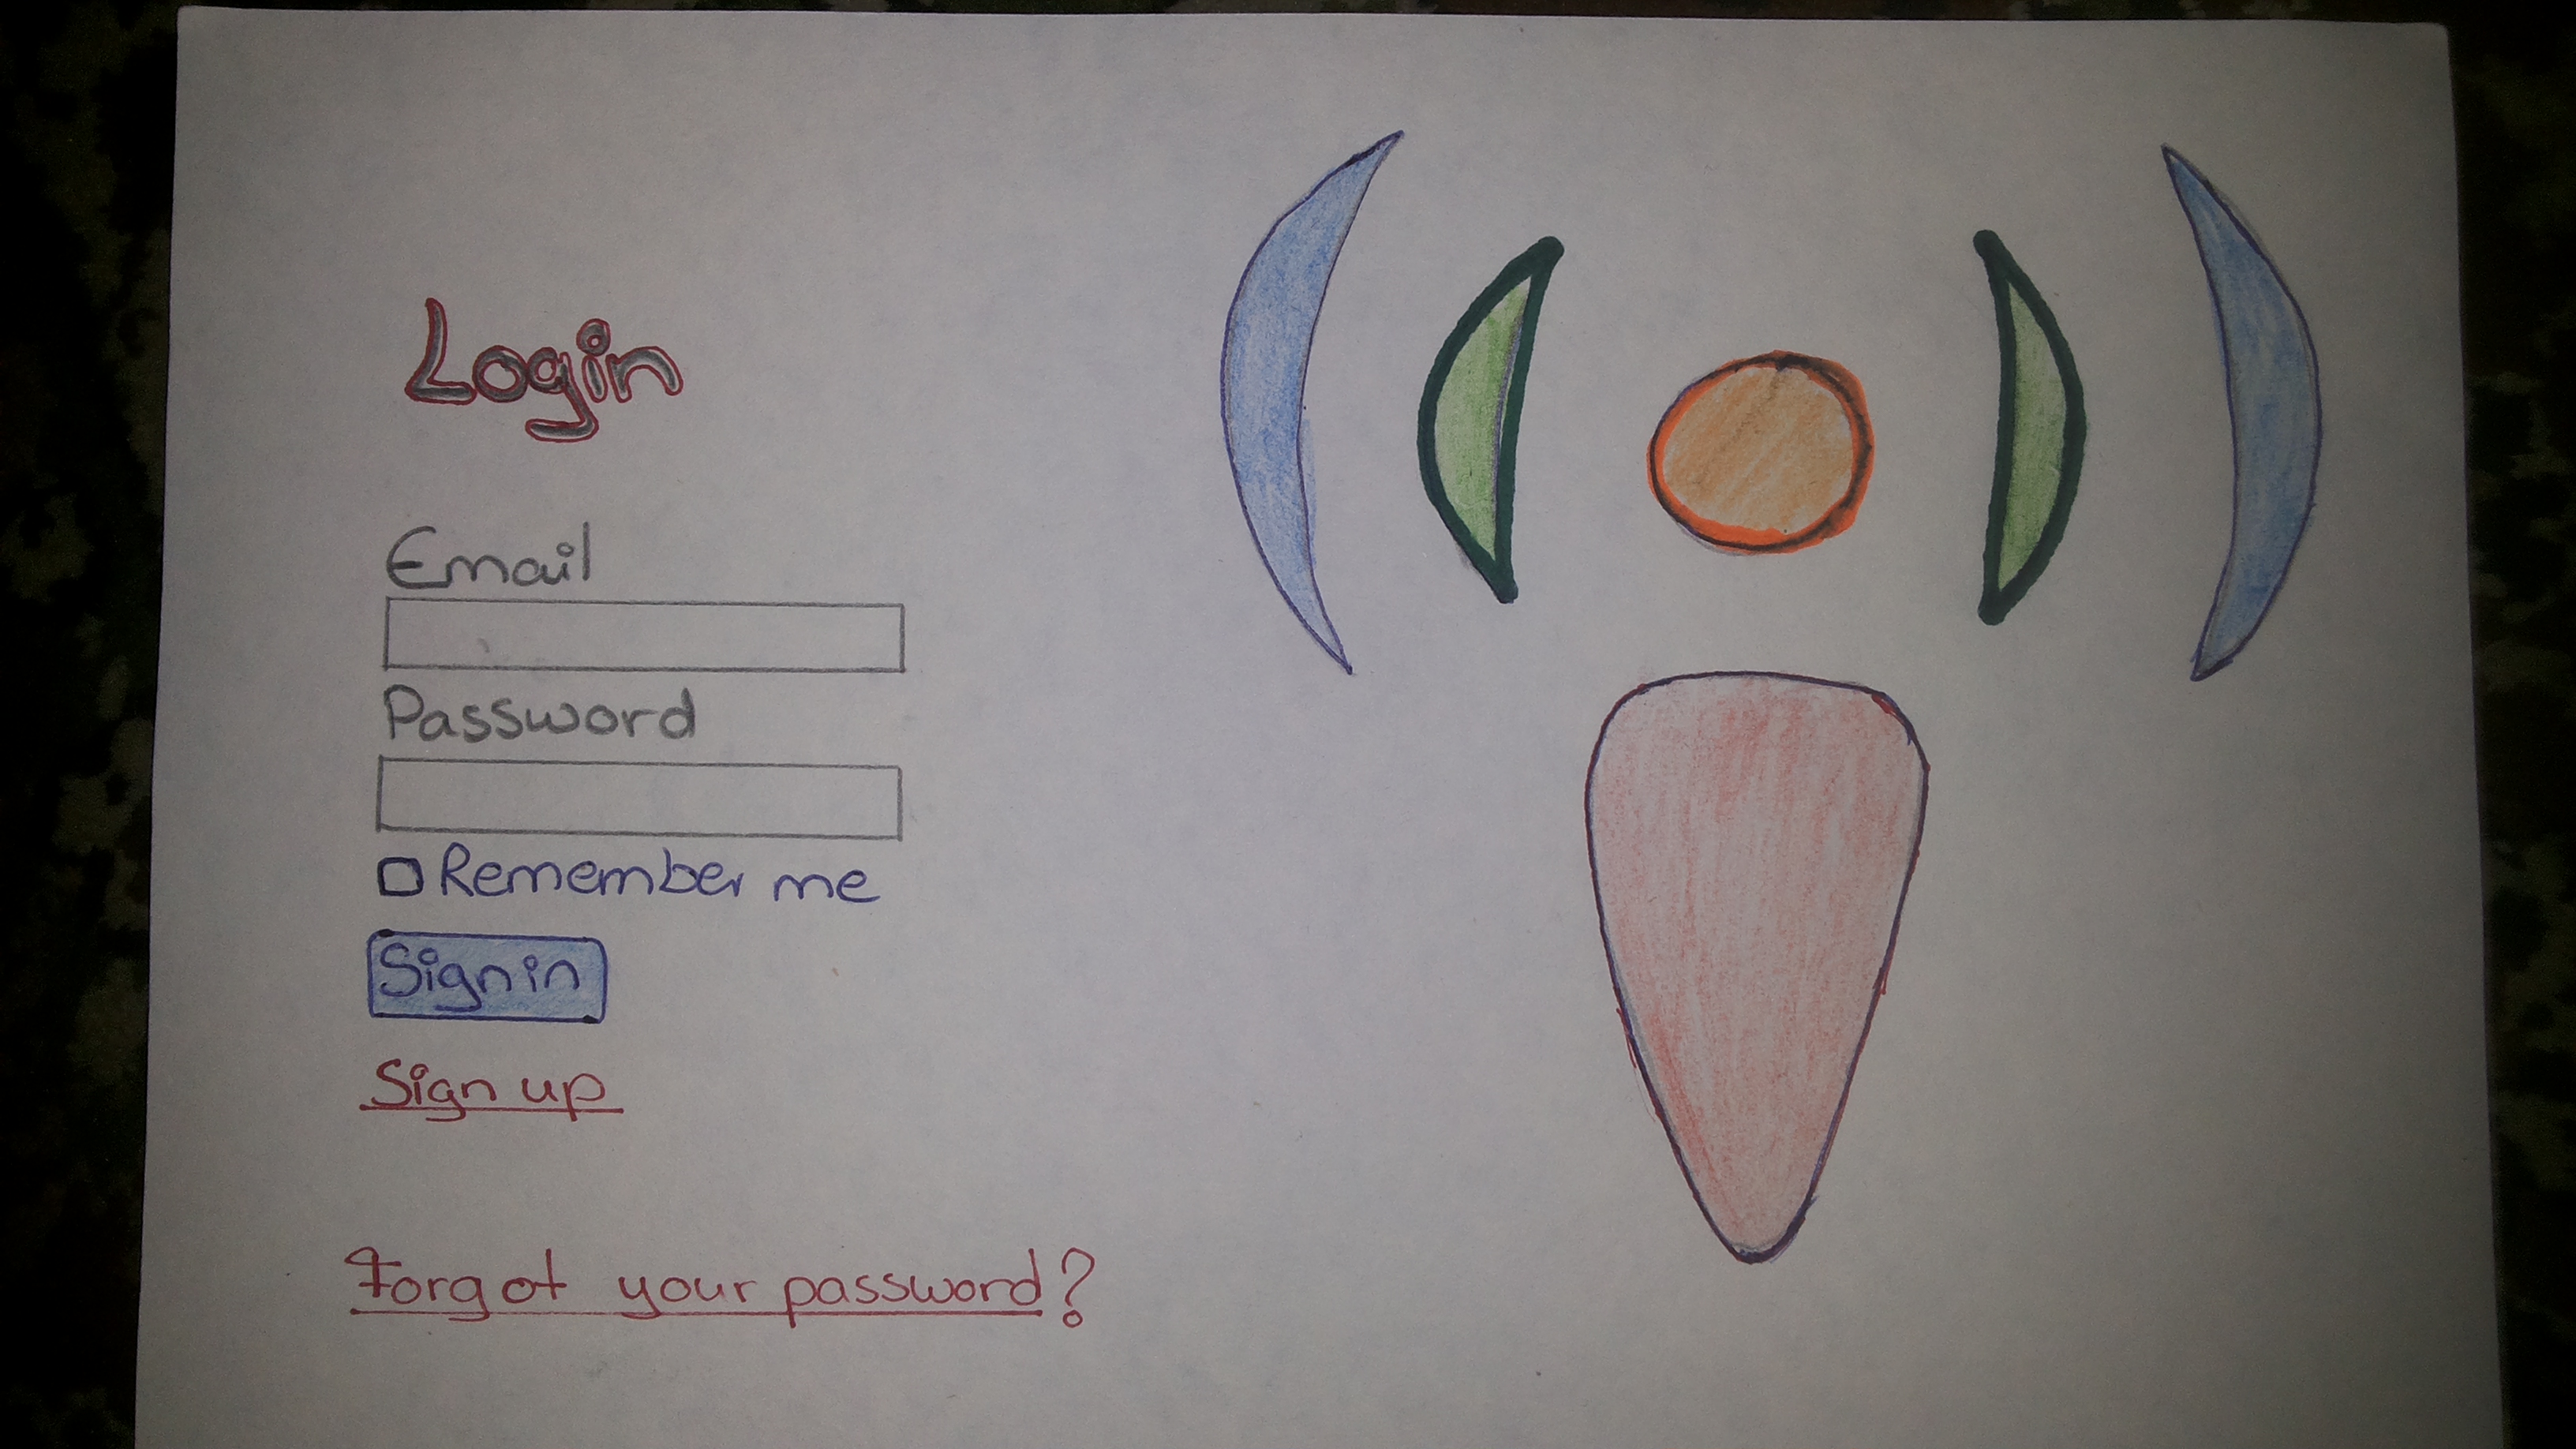 Login
Email
Password
Remember me
Sign in
Sign up
Forgot your password?